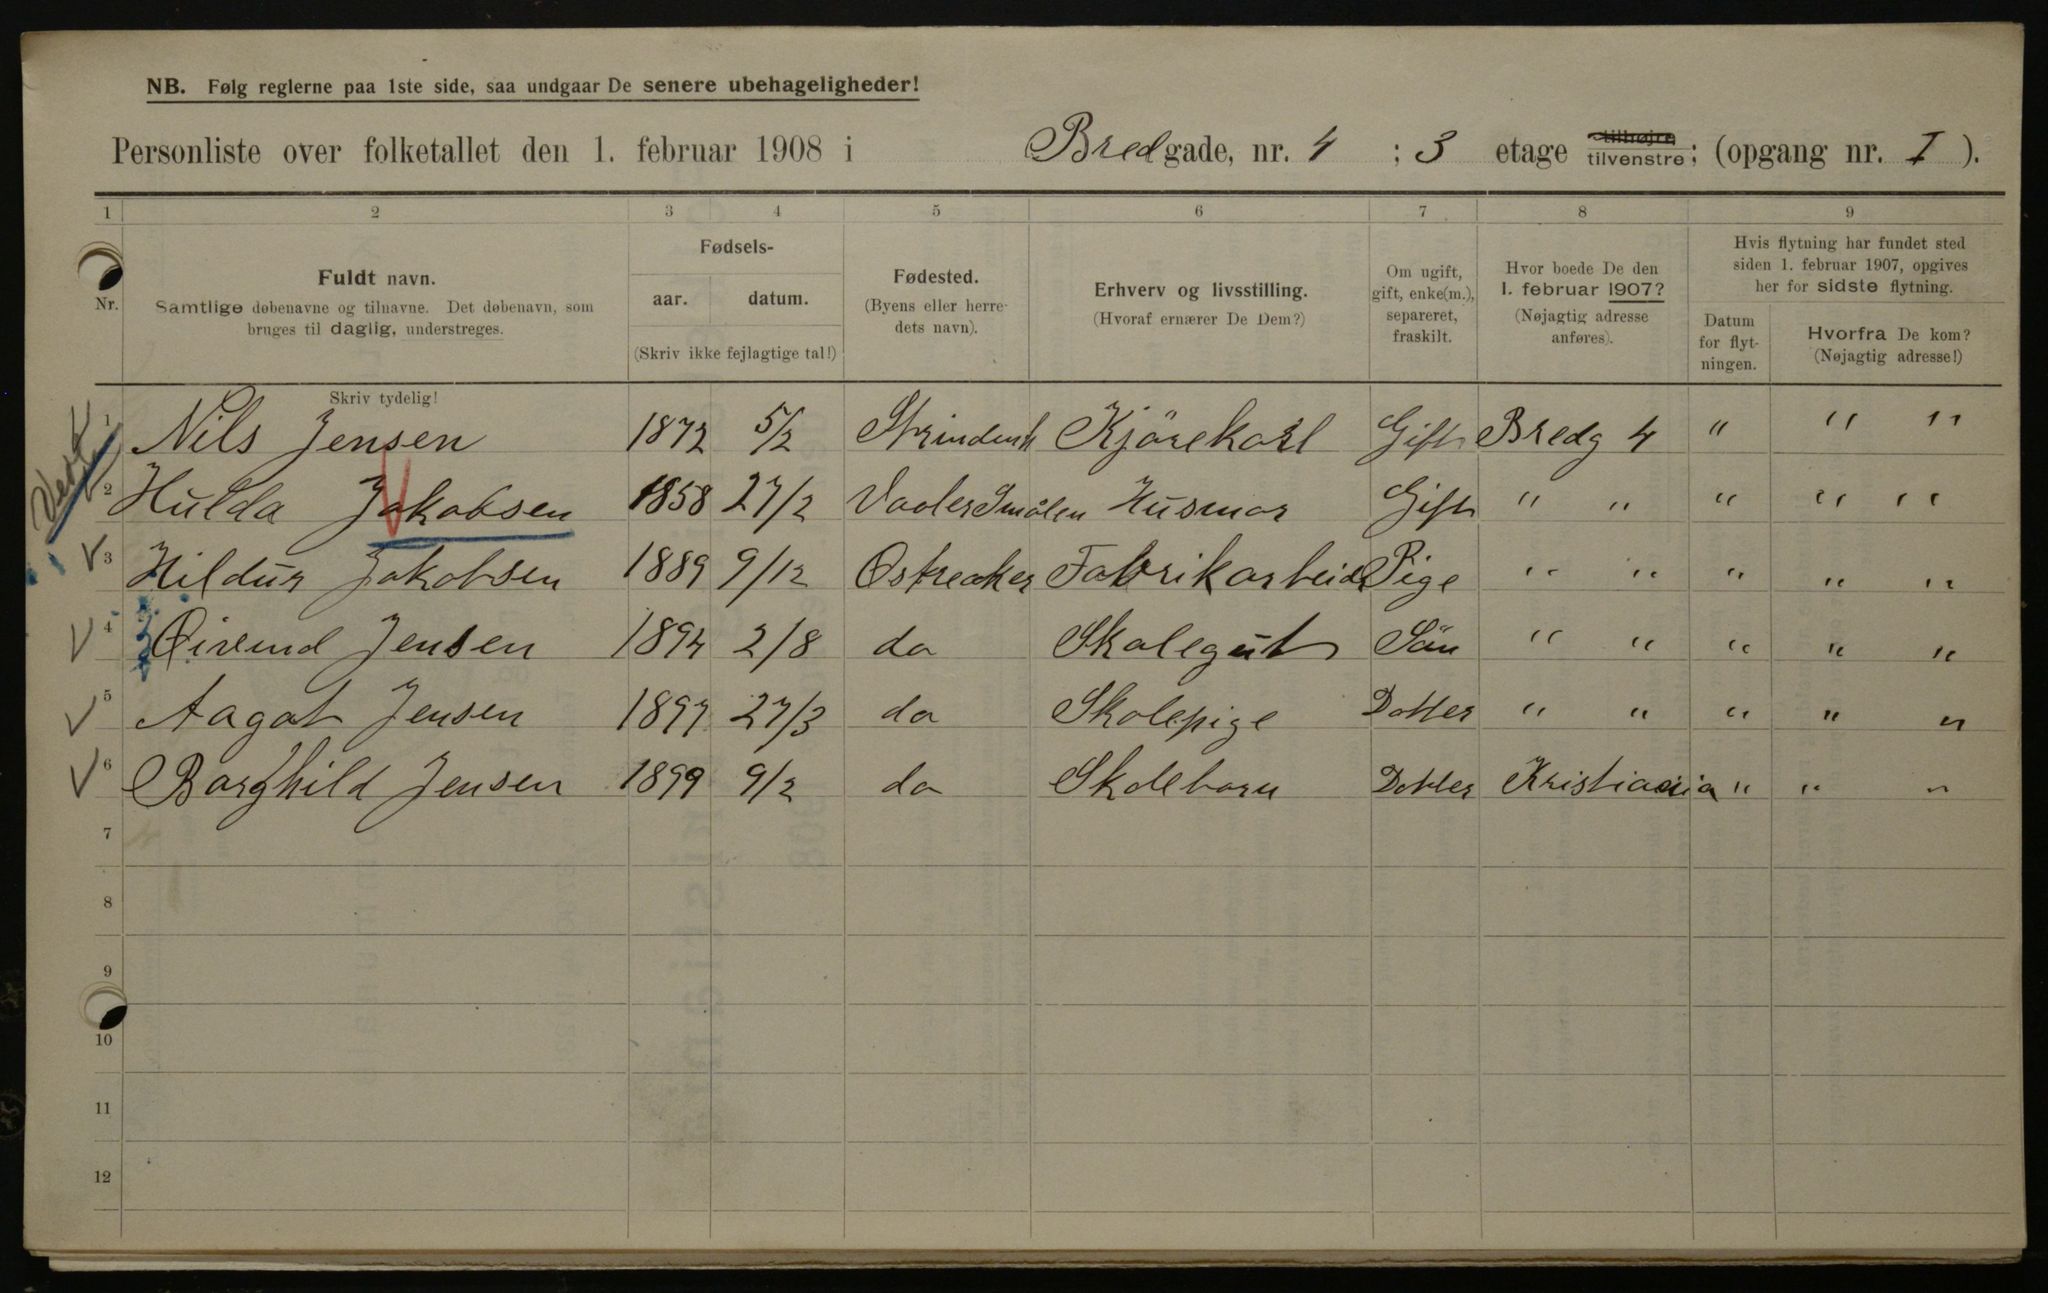 NB. Følg reglerne paa 1ste side, saa undgaar De senere ubehageligheder!
Personliste over folketallet den 1. februar 1908 i Bredgade, nr. 4 ; 3 etage tilhøjre, tilvenstre; (opgang nr. I ).
1 2 3 4 5 6 7 8 9
Nr.
Fuldt navn.
Samtlige døbenavne og tilnavne. Det døbenavn, som
bruges til daglig, understreges.
Skriv tydelig!
Fødsels-
aar. datum.
(Skriv ikke fejlagtige tal!)
Fødested.
(Byens eller herre-
dets navn).
Erhverv og livsstilling.
(Hvoraf ernærer De Dem?)
Om ugift,
gift, enke(m.),
separeret,
fraskilt.
Hvor boede De den
1. februar 1907?
(Nøjagtig adresse
anføres).
Hvis flytning har fundet sted
siden 1. februar 1907, opgives
her for sidste flytning.
Datum
for flyt-
ningen.
Hvorfra De kom?
(Nøjagtig adresse!)
1 Nils Jensen 1872 5/2 Kjörekarl Gift Bredg 4 " " "
2 Hulda Jakobsen 1858 27/2 Vaaler Smålen Husmor Gift " " " " "
3 Hildur Jakobsen 1889 9/12 Østreaker Fabrikarbeid Pige " " " " "
4 Øivind Jensen 1894 2/8 do Skolegut Sön " " " " "
5 Aagot Jensen 1897 27/3 do Skolepige Dotter " " " " "
6 Borghild Jensen 1899 9/2 do Skolebarn Dotter Kristiania " " "
7
8
9
10
11
12